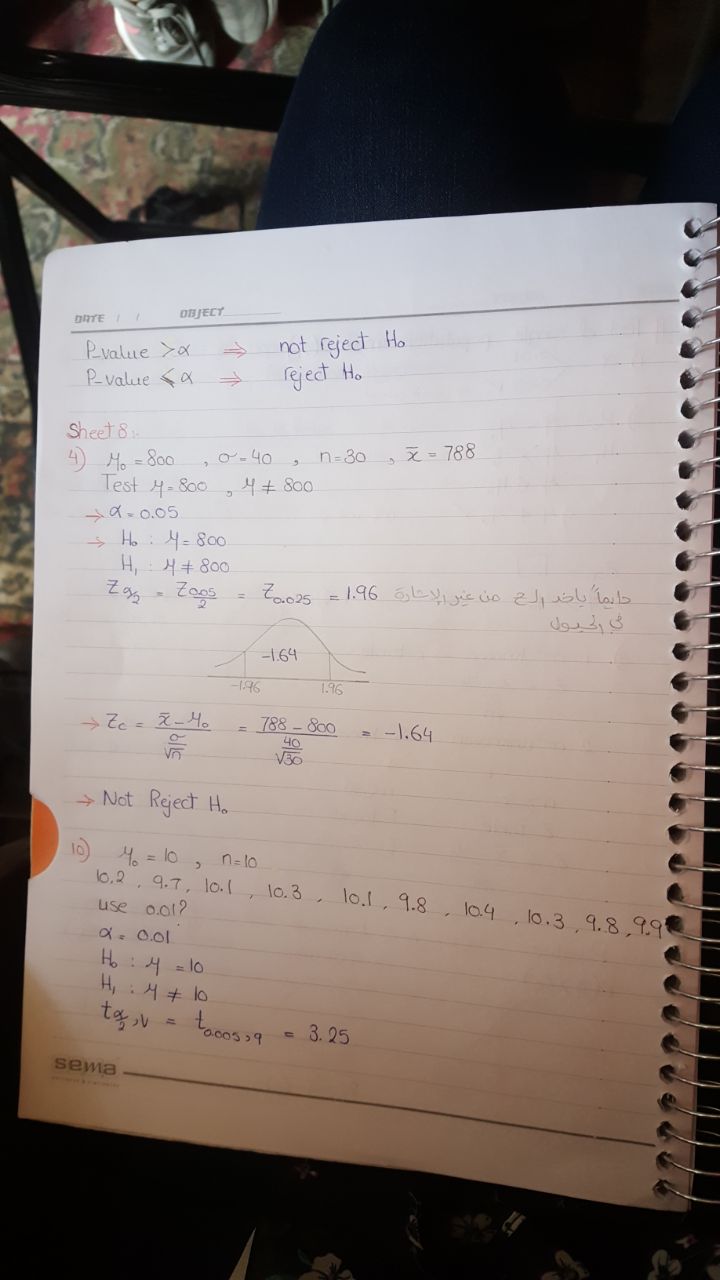 DATE / / OBJECT
P-value > α ⇒ not reject H₀
P-value ≤ α ⇒ reject H₀
Sheet 8:
4) μ₀ = 800 , σ = 40 , n = 30 , x̄ = 788
Test μ = 800 , μ ≠ 800
→ α = 0.05
→ H₀ : μ = 800
H₁ : μ ≠ 800
Z α/2 = Z 0.05/2 = Z 0.025 = 1.96 دايماً ياخد من غير الإشارة
في الجدول
-1.64
-1.96 1.96
→ Zc = (x̄ - μ₀) / (σ/√n) = (788 - 800) / (40/√30) = -1.64
→ Not Reject H₀
10) μ₀ = 10 , n = 10
10.2 , 9.7 , 10.1 , 10.3 , 10.1 , 9.8 , 10.4 , 10.3 , 9.8 , 9.9
use 0.01?
α = 0.01
H₀ : μ = 10
H₁ : μ ≠ 10
t α/2 , V = t 0.005 , 9 = 3.25
sema